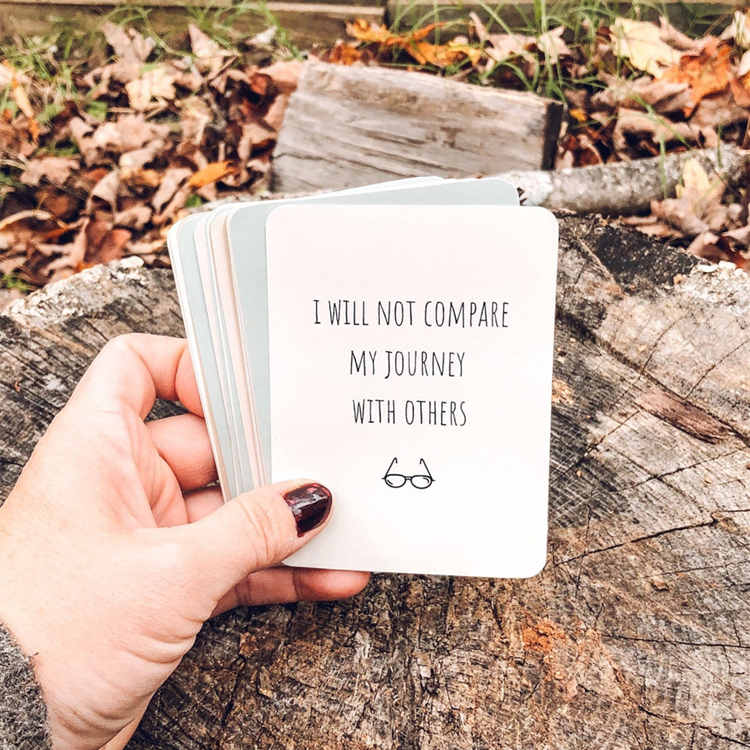 I WILL NOT COMPARE
MY JOURNEY
WITH OTHERS